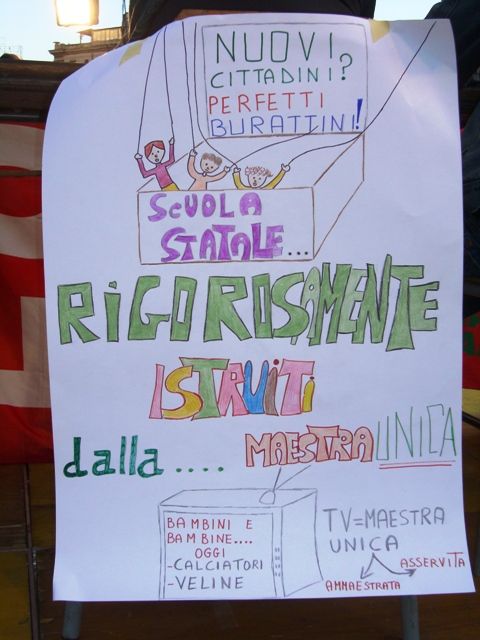 NUOVI
CITTADINI?
PERFETTI
BURATTINI!
SCUOLA
STATALE...
RIGOROSAMENTE
ISTRUITI
dalla .... MAESTRA UNICA
BAMBINI E
BAMBINE....
OGGI
-CALCIATORI
-VELINE
TV=MAESTRA
UNICA
ASSERVITA
AMMAESTRATA